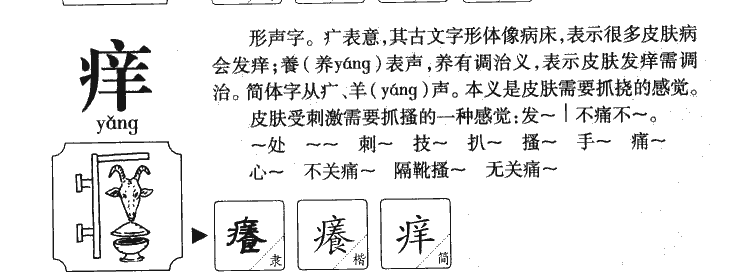 痒
yǎng
形声字。疒表意,其古文字形体像病床,表示很多皮肤病
会发痒;養(养yáng)表声,养有调治义,表示皮肤发痒需调
治。简体字从疒、羊(yáng)声。本义是皮肤需要抓挠的感觉。
皮肤受刺激需要抓搔的一种感觉:发～|不痛不～。
～处 ～～ 刺～ 技～ 扒～ 搔～ 手～ 痛～
心～ 不关痛～ 隔靴搔～ 无关痛～
癢 隶
癢 楷
痒 简